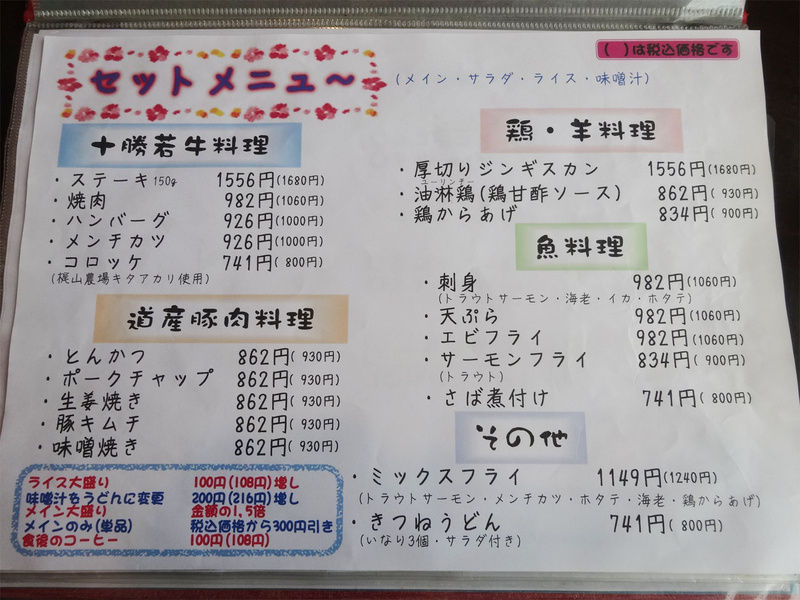 ( )は税込価格です
セットメニュー〜
(メイン・サラダ・ライス・味噌汁)
十勝若牛料理
・ステーキ150g 1556円(1680円)
・焼肉 982円(1060円)
・ハンバーグ 926円(1000円)
・メンチカツ 926円(1000円)
・コロッケ 741円( 800円)
(梶山農場キタアカリ使用)
道産豚肉料理
・とんかつ 862円( 930円)
・ポークチャップ 862円( 930円)
・生姜焼き 862円( 930円)
・豚キムチ 862円( 930円)
・味噌焼き 862円( 930円)
ライス大盛り 100円(108円)増し
味噌汁をうどんに変更 200円(216円)増し
メイン大盛り 金額の1,5倍
メインのみ(単品) 税込価格から300円引き
食後のコーヒー 100円(108円)
鶏・羊料理
・厚切りジンギスカン 1556円(1680円)
ユーリンチー
・油淋鶏(鶏甘酢ソース) 862円( 930円)
・鶏からあげ 834円( 900円)
魚料理
・刺身 982円(1060円)
(トラウトサーモン・海老・イカ・ホタテ)
・天ぷら 982円(1060円)
・エビフライ 982円(1060円)
・サーモンフライ 834円( 900円)
(トラウト)
・さば煮付け 741円( 800円)
その他
・ミックスフライ 1149円(1240円)
(トラウトサーモン・メンチカツ・ホタテ・海老・鶏からあげ)
・きつねうどん 741円( 800円)
(いなり3個・サラダ付き)